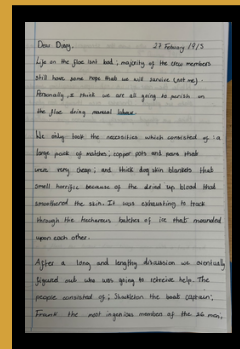 Dear Diary, 27 February 1915
Life on the floe isnt bad; majority of the crew members
still have some hope that we will survive (not me).
Personally, I think we are all going to perish on
the floe doing manual labour.
We only took the necessities which consisted of: a
large pack of matches; copper pots and pans that
were very cheap; and thick dog skin blankets that
smell horrific because of the dried up blood that
smothered the skin. It was exhausting to track
through the treacherous batches of ice that mounded
upon each other.
After a long and lengthy discussion we eventually
figured out who was going to retreive help. The
people consisted of; Shackleton the boat captain;
Frank the most ingenious member of the 26 men;